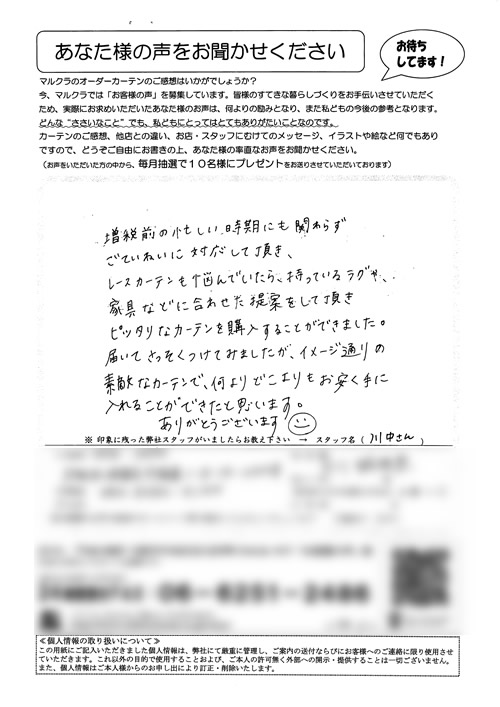 あなた様の声をお聞かせください
お待ち
してます!
マルクラのオーダーカーテンのご感想はいかがでしょうか?
今、マルクラでは「お客様の声」を募集しています。皆様のすてきな暮らしづくりをお手伝いさせていただく
ため、実際にお求めいただいたあなた様のお声は、何よりの励みとなり、また私どもの今後の参考となります。
どんな“ささいなこと”でも、私どもにとってはとてもありがたいことなのです。
カーテンのご感想、他店との違い、お店・スタッフにむけてのメッセージ、イラストや絵など何でもあり
ですので、どうぞご自由にお書きの上、あなた様の率直なお声をお聞かせください。
(お声をいただいた方の中から、毎月抽選で10名様にプレゼントをお送りさせていただいております)
増税前の忙しい時期にも関わらず
ごていねいに対応して頂き、
レースカーテンも悩んでいたら、持っているラグや、
家具などに合わせた提案をして頂き
ピッタリなカーテンを購入することができました。
届いてさっそくつけてみましたが、イメージ通りの
素敵なカーテンで、何よりどこよりもお安く手に
入れることができたと思います。
ありがとうございます
※ 印象に残った弊社スタッフがいましたらお教え下さい → スタッフ名 ( 川中さん )
06-6251-2486
≪個人情報の取り扱いについて≫
この用紙にご記入いただきました個人情報は、弊社にて厳重に管理し、ご案内の送付ならびにお客様へのご連絡に限り使用させ
ていただきます。これ以外の目的で使用することおよび、ご本人の許可無く外部への開示・提供することは一切ございません。
また、個人情報はご本人様からのお申し出により訂正・削除いたします。